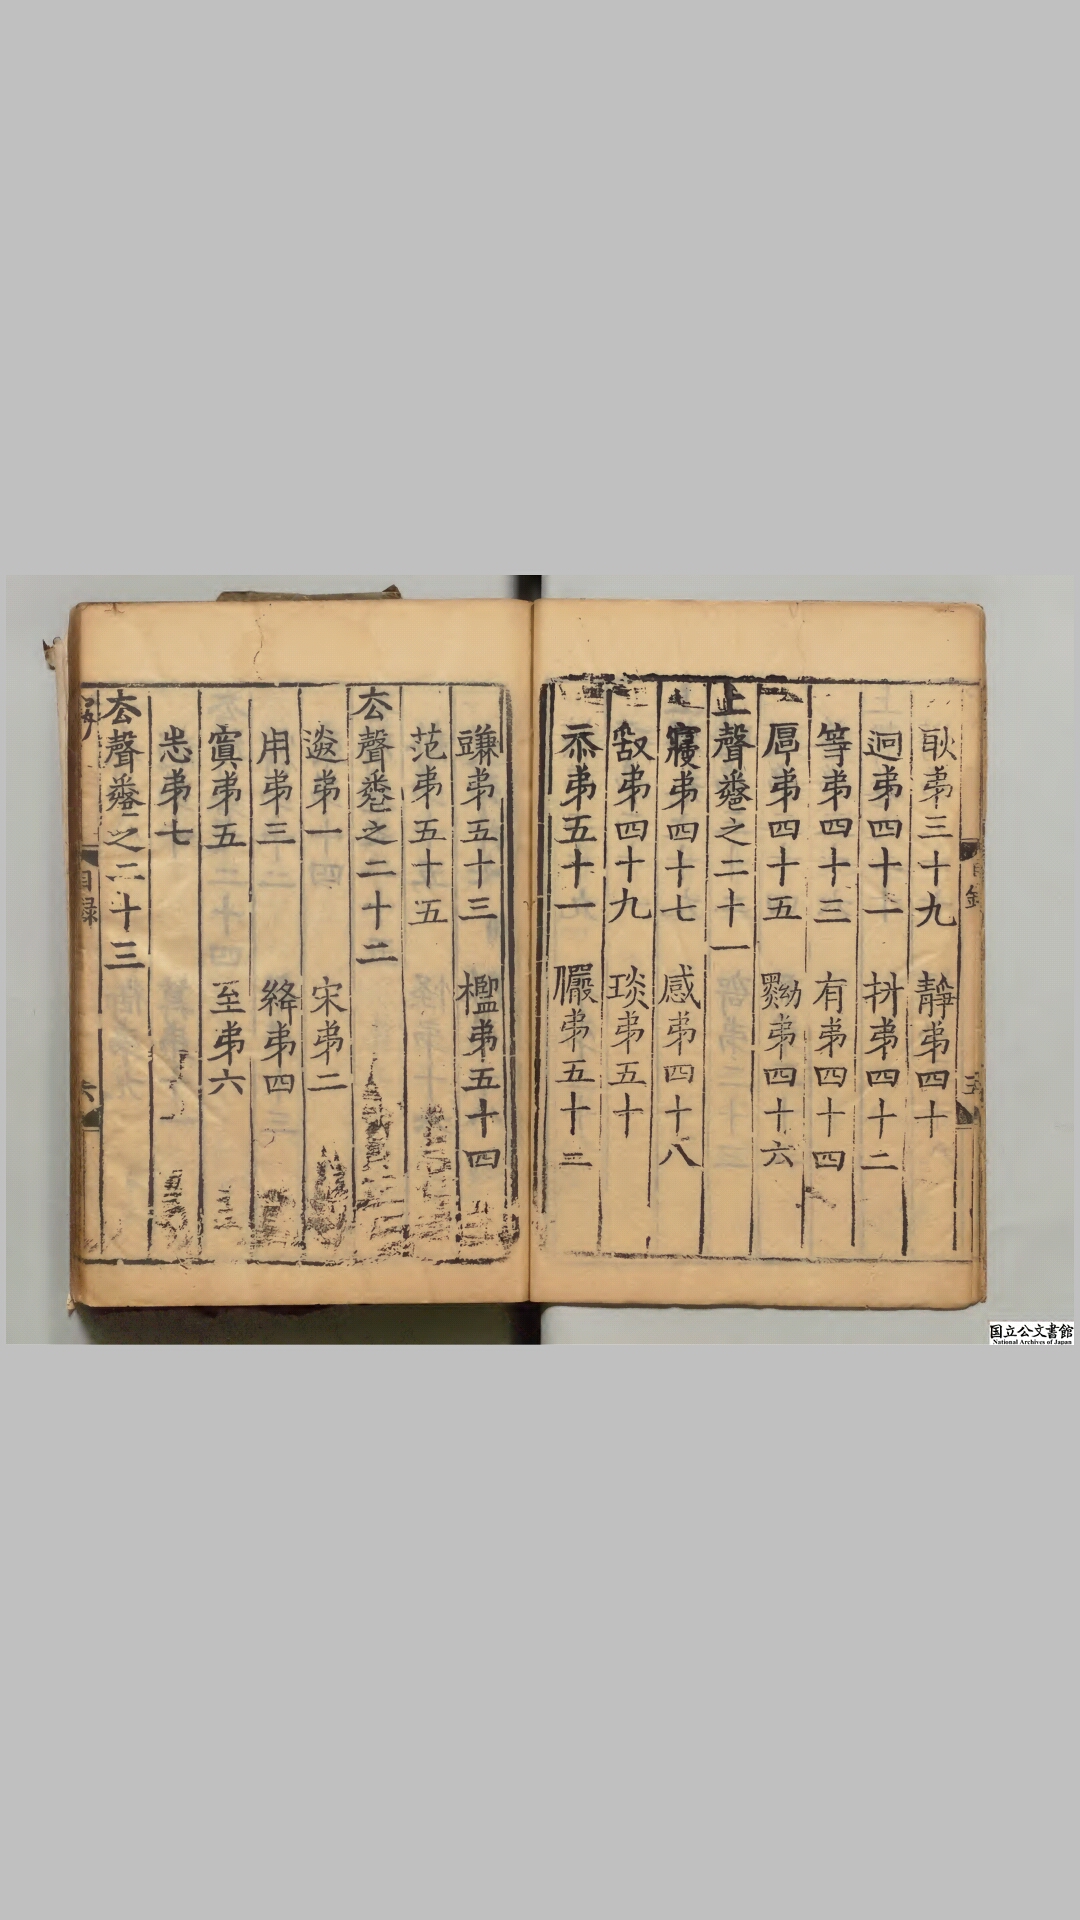 耿弟三十九 靜弟四十
迥弟四十一 拼弟四十二
等弟四十三 有弟四十四
厚弟四十五 黝弟四十六
上聲卷之二十一
寢弟四十七 感弟四十八
敢弟四十九 琰弟五十
忝弟五十一 儼弟五十二
豏弟五十三 檻弟五十四
范弟五十五
厺聲卷之二十二
送弟一 宋弟二
用弟三 絳弟四
寘弟五 至弟六
志弟七
厺聲卷之二十三
目録
六
国立公文書館
National Archives of Japan